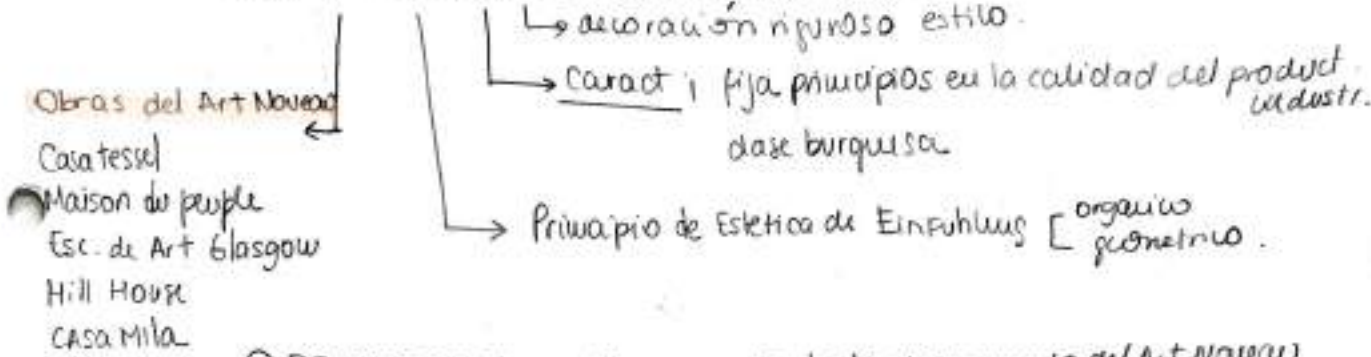 ↳ decoración riguroso estilo.
→ Caract ; fija principios en la calidad del product.
industr.
clase burguesa
Obras del Art Noveau
Casa tessel
Maison du peuple
Esc. de Art Glasgow
Hill House
CASA Mila
→ Principio de Estetica de Einfuhlung [ organico
geometrico.
del Art Noveau